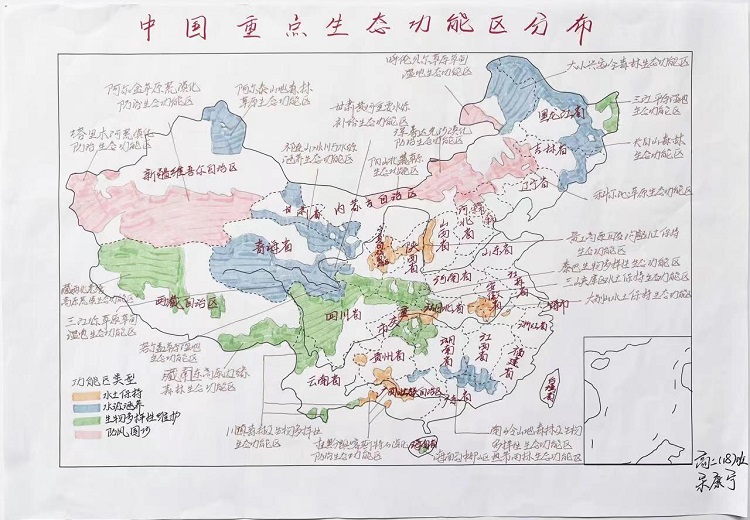 中国重点生态功能区分布
呼伦贝尔草原草甸
湿地生态功能区
大小兴安岭森林生态功能区
阿尔金草原荒漠化
防治生态功能区
阿尔泰山地森林
草原生态功能区
甘肃黄河重要水源
补给生态功能区
三江平原湿地
生态功能区
黑龙江省
塔里木河荒漠化
防治生态功能区
祁连山冰川与水源
涵养生态功能区
浑善达克沙漠化
防治生态功能区
长白山森林
生态功能区
吉林省
阴山北麓草原
生态功能区
新疆维吾尔自治区
辽宁省
科尔沁草原生态功能区
内蒙古自治区
甘肃省
河北省
山西省
陕西省
青海省
山东省
黄土高原丘陵沟壑水土保持
生态功能区
秦巴生物多样性生态功能区
河南省
三峡库区水土保持生态功能区
大别山水土保持生态功能区
高原荒漠生态功能区
西藏自治区
四川省
湖北省
重庆市
三江源草原草甸
湿地生态功能区
若尔盖草原湿地
生态功能区
浙江省
湖南省
江西省
福建省
贵州省
藏东南高原边缘
森林生态功能区
云南省
广东省
台湾省
功能区类型
水土保持
水源涵养
生物多样性维护
防风固沙
川滇森林及生物多样性
生态功能区
桂黔滇喀斯特石漠化
防治生态功能区
南岭山地森林及生物
多样性生态功能区
海南省
海南岛中部山区热带雨林生态功能区
高二(18)班